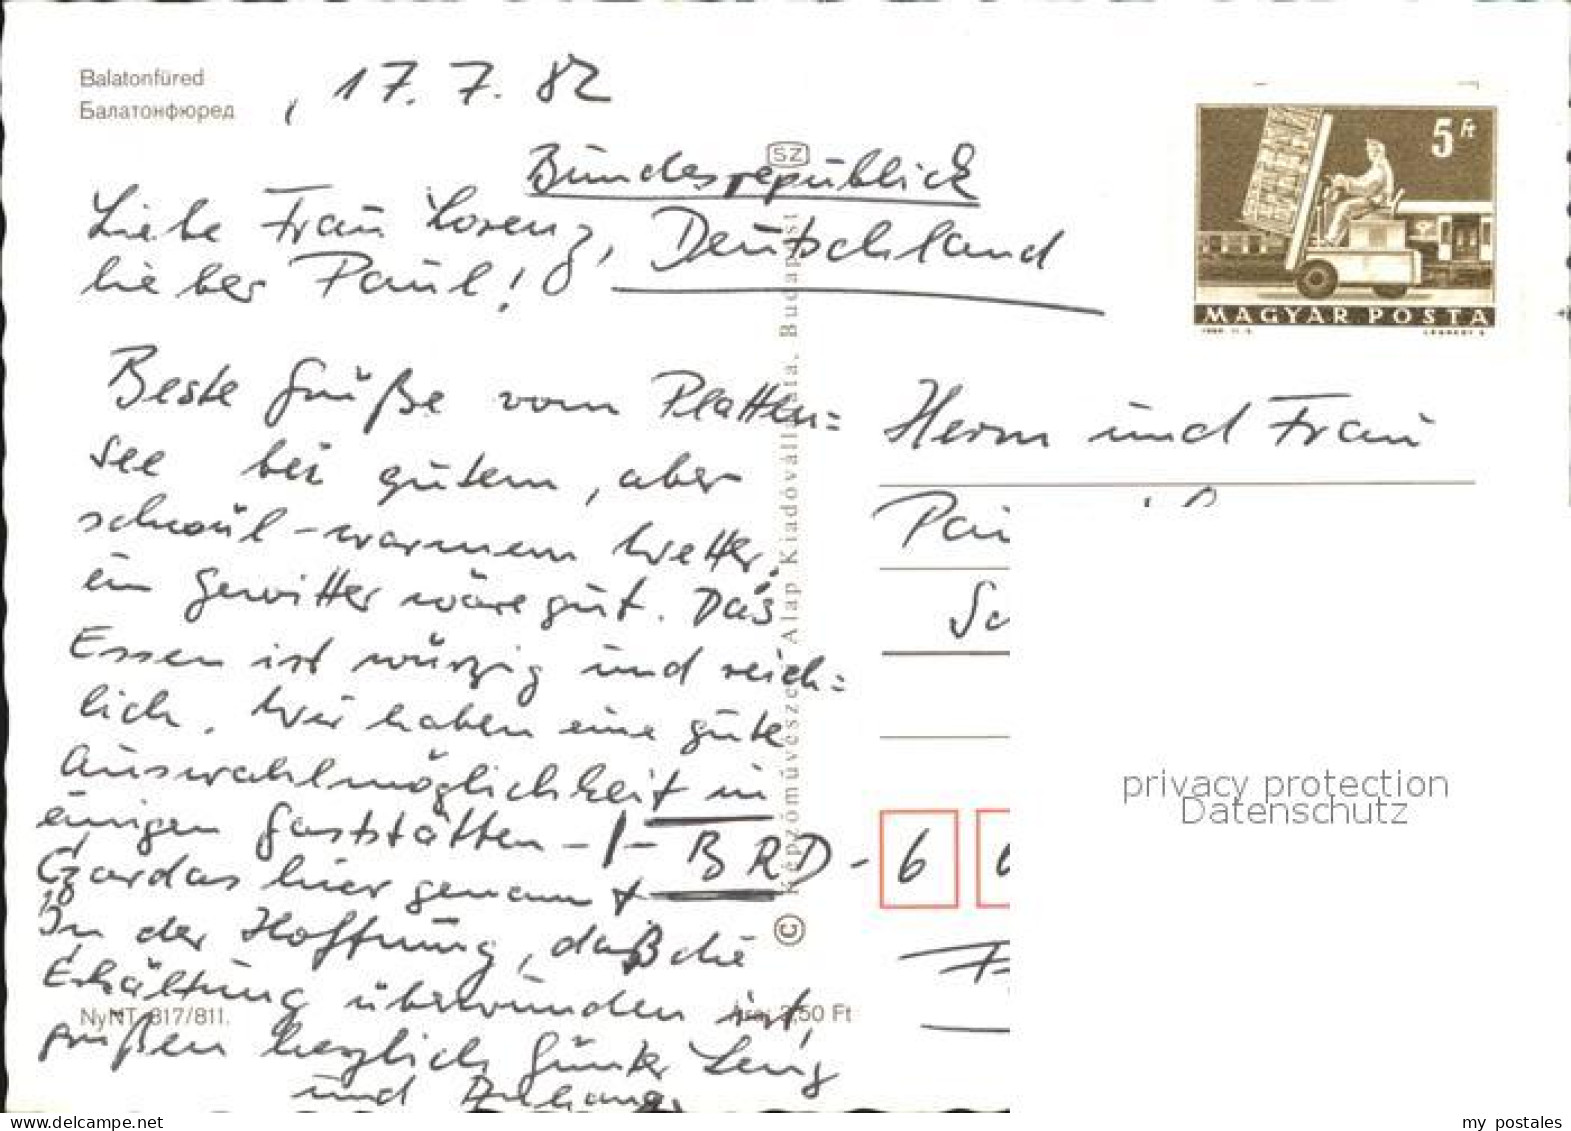 Balatonfüred
Балатонфюред
, 17. 7. 82
SZ
Bundesrepublick
Deutschland
Liebe Frau Lorenz,
lieber Paul!
Beste Grüße vom Platten=
see bei gutem, aber
schwül-warmem Wetter,
ein Gewitter wäre gut. Das
Essen ist würzig und reich=
lich. Wir haben eine gute
Auswahlmöglichkeit in
einigen Gaststätten -
Czardas hier genannt
In der Hoffnung, daß die
Erkältung überwunden ist,
grüßen herzlich Günter Lenz
und Anhang
NyNT. 817/811.
Ára: 2,50 Ft
© Képzőművészeti Alap Kiadóvállalata, Budapest
5 Ft
MAGYAR POSTA
Herrn und Frau
BRD - 6
privacy protection
Datenschutz
www.delcampe.net
my_postales